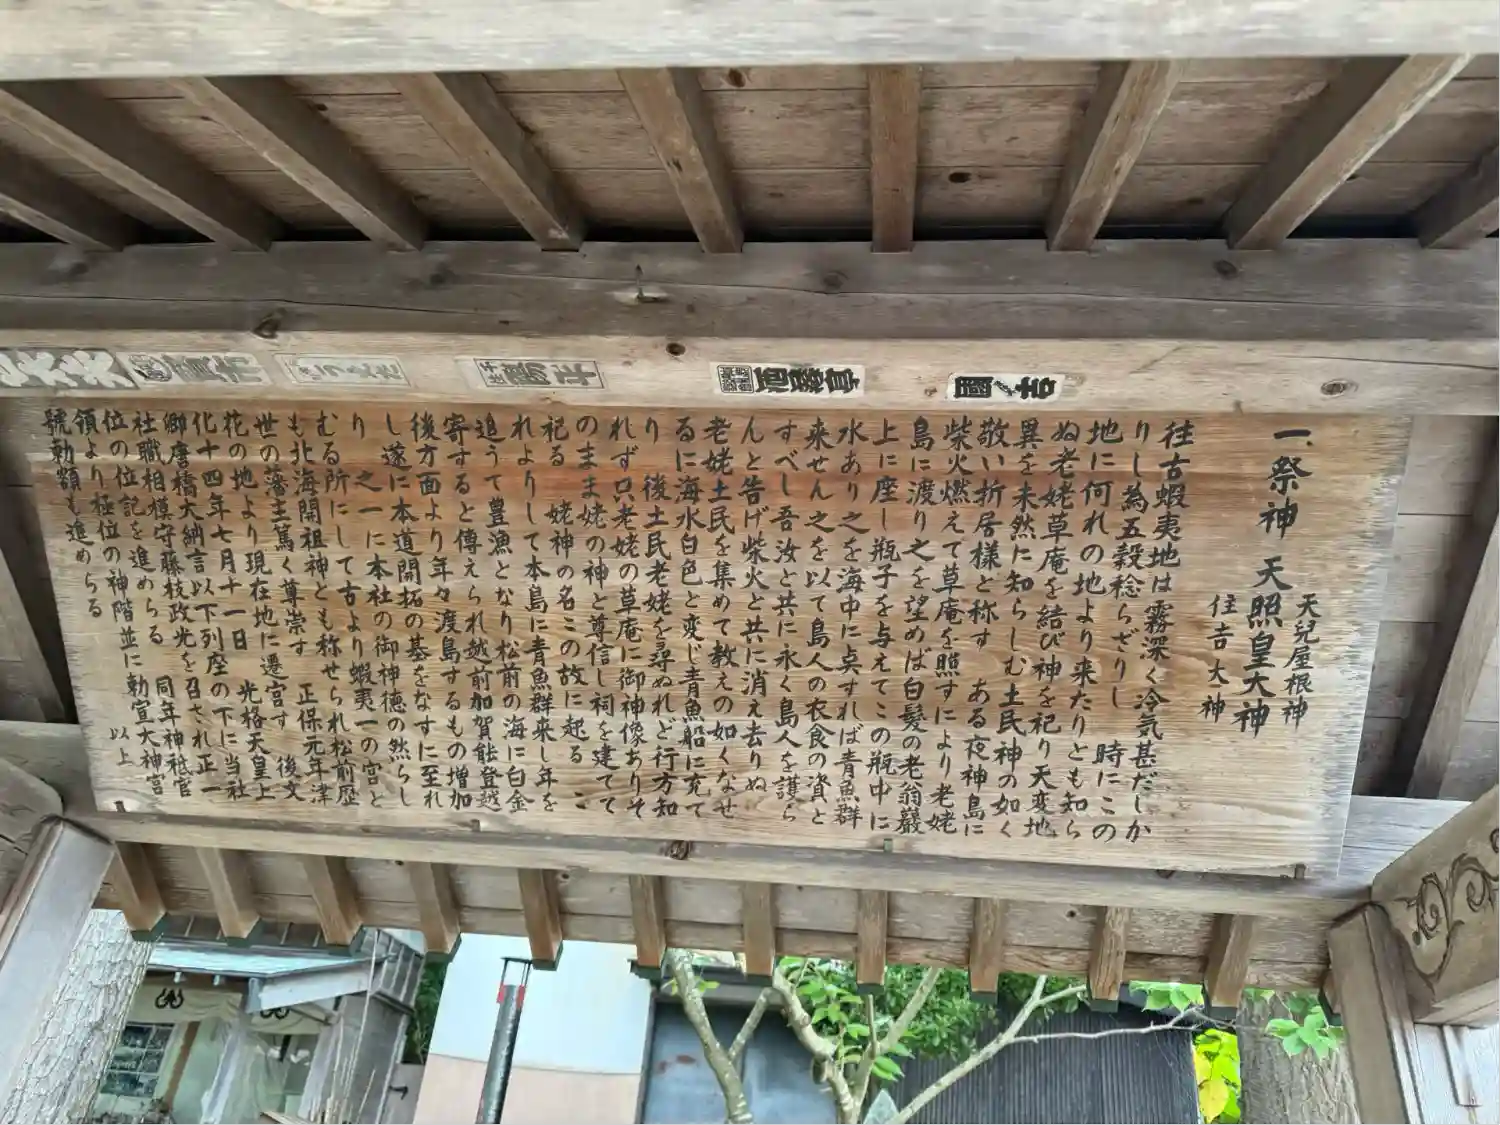 一、祭神　天照皇大神
天兒屋根神
住吉大神
往古蝦夷地は霧深く冷気甚だしか
りし為五穀稔らざりし　時にこの
地に何れの地より来たりとも知ら
ぬ老姥草庵を結び神を祀り天変地
異を未然に知らしむ土民神の如く
敬い折居様と称す　ある夜神島に
柴火燃えて草庵を照すにより老姥
島に渡り之を望めば白髪の老翁巖
上に座し瓶子を与えてこの瓶中に
水あり之を海中に点すれば青魚群
来せん之を以て島人の衣食の資と
すべし吾汝と共に永く島人を護ら
んと告げ柴火と共に消え去りぬ
老姥土民を集めて教えの如くなせ
るに海水白色と変じ青魚船に充て
り　後土民老姥を尋ぬれど行方知
れず只老姥の草庵に御神像ありそ
のまま姥の神と尊信し祠を建てて
祀る　姥神の名この故に起る　こ
れよりして本島に青魚群来し年を
追うて豊漁となり松前の海に白金
寄すると傳えられ越前加賀能登越
後方面より年々渡島するもの増加
し遂に本道開拓の基をなすに至れ
り　之一に本社の御神徳の然らし
むる所にして古より蝦夷一の宮と
も北海開祖神とも称せられ松前歴
世の藩主篤く尊崇す　正保元年津
花の地より現在地に遷宮す　後文
化十四年七月十一日　光格天皇上
卿唐橋大納言以下列座の下に当社
社職相模守藤枝政光を召され正一
位の位記を進めらる　同年神祇官
領より極位の神階並に勅宣大神宮
號勅額も進めらる
以上